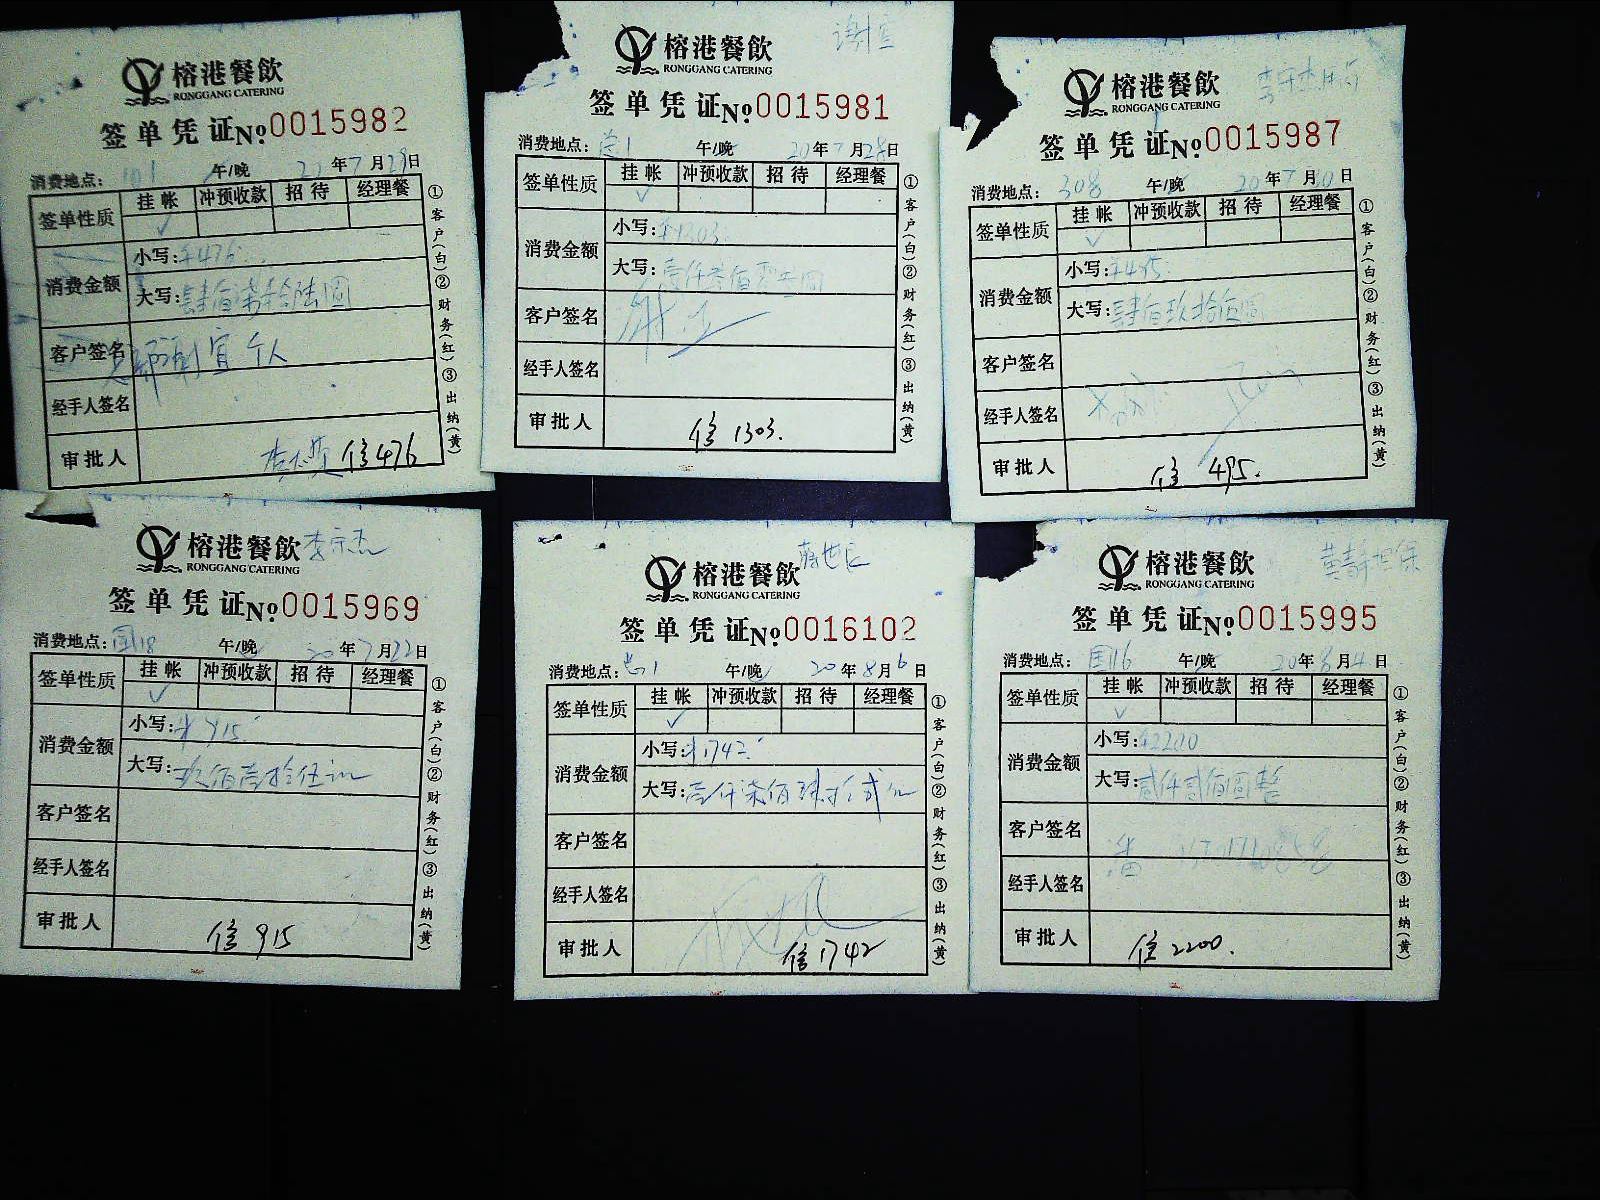 榕港餐飲
RONGGANG CATERING
签单凭证 No 0015982
消费地点: 午/晚 20年7月29日
签单性质 挂帐 冲预收款 招待 经理餐
✓
消费金额 小写: ¥476.
大写: 肆佰柒拾陆圆
客户签名 宜个人
经手人签名
审批人 信476
①客户(白)②财务(红)③出纳(黄)
谢宜
榕港餐飲
RONGGANG CATERING
签单凭证 No 0015981
消费地点: 总1 午/晚 20年7月28日
签单性质 挂帐 冲预收款 招待 经理餐
✓
消费金额 小写: ¥1303.
大写: 壹仟叁佰零叁圆
客户签名
经手人签名
审批人 信1303.
①客户(白)②财务(红)③出纳(黄)
榕港餐飲
RONGGANG CATERING
签单凭证 No 0015987
消费地点: 308 午/晚 20年7月30日
签单性质 挂帐 冲预收款 招待 经理餐
✓
消费金额 小写: ¥495.
大写: 肆佰玖拾伍圆
客户签名
经手人签名
审批人 信495.
①客户(白)②财务(红)③出纳(黄)
榕港餐飲 李宗杰
RONGGANG CATERING
签单凭证 No 0015969
消费地点: 国18 午/晚 20年7月22日
签单性质 挂帐 冲预收款 招待 经理餐
✓
消费金额 小写: ¥915.
大写: 玖佰壹拾伍元
客户签名
经手人签名
审批人 信915
①客户(白)②财务(红)③出纳(黄)
榕港餐飲
RONGGANG CATERING
签单凭证 No 0016102
消费地点: 总1 午/晚 20年8月6日
签单性质 挂帐 冲预收款 招待 经理餐
✓
消费金额 小写: ¥1742.
大写: 壹仟柒佰肆拾贰元
客户签名
经手人签名
审批人 信1742
①客户(白)②财务(红)③出纳(黄)
黄静担保
榕港餐飲
RONGGANG CATERING
签单凭证 No 0015995
消费地点: 国16 午/晚 20年8月4日
签单性质 挂帐 冲预收款 招待 经理餐
✓
消费金额 小写: ¥2200
大写: 贰仟贰佰圆整
客户签名 潘
经手人签名
审批人 信2200.
①客户(白)②财务(红)③出纳(黄)